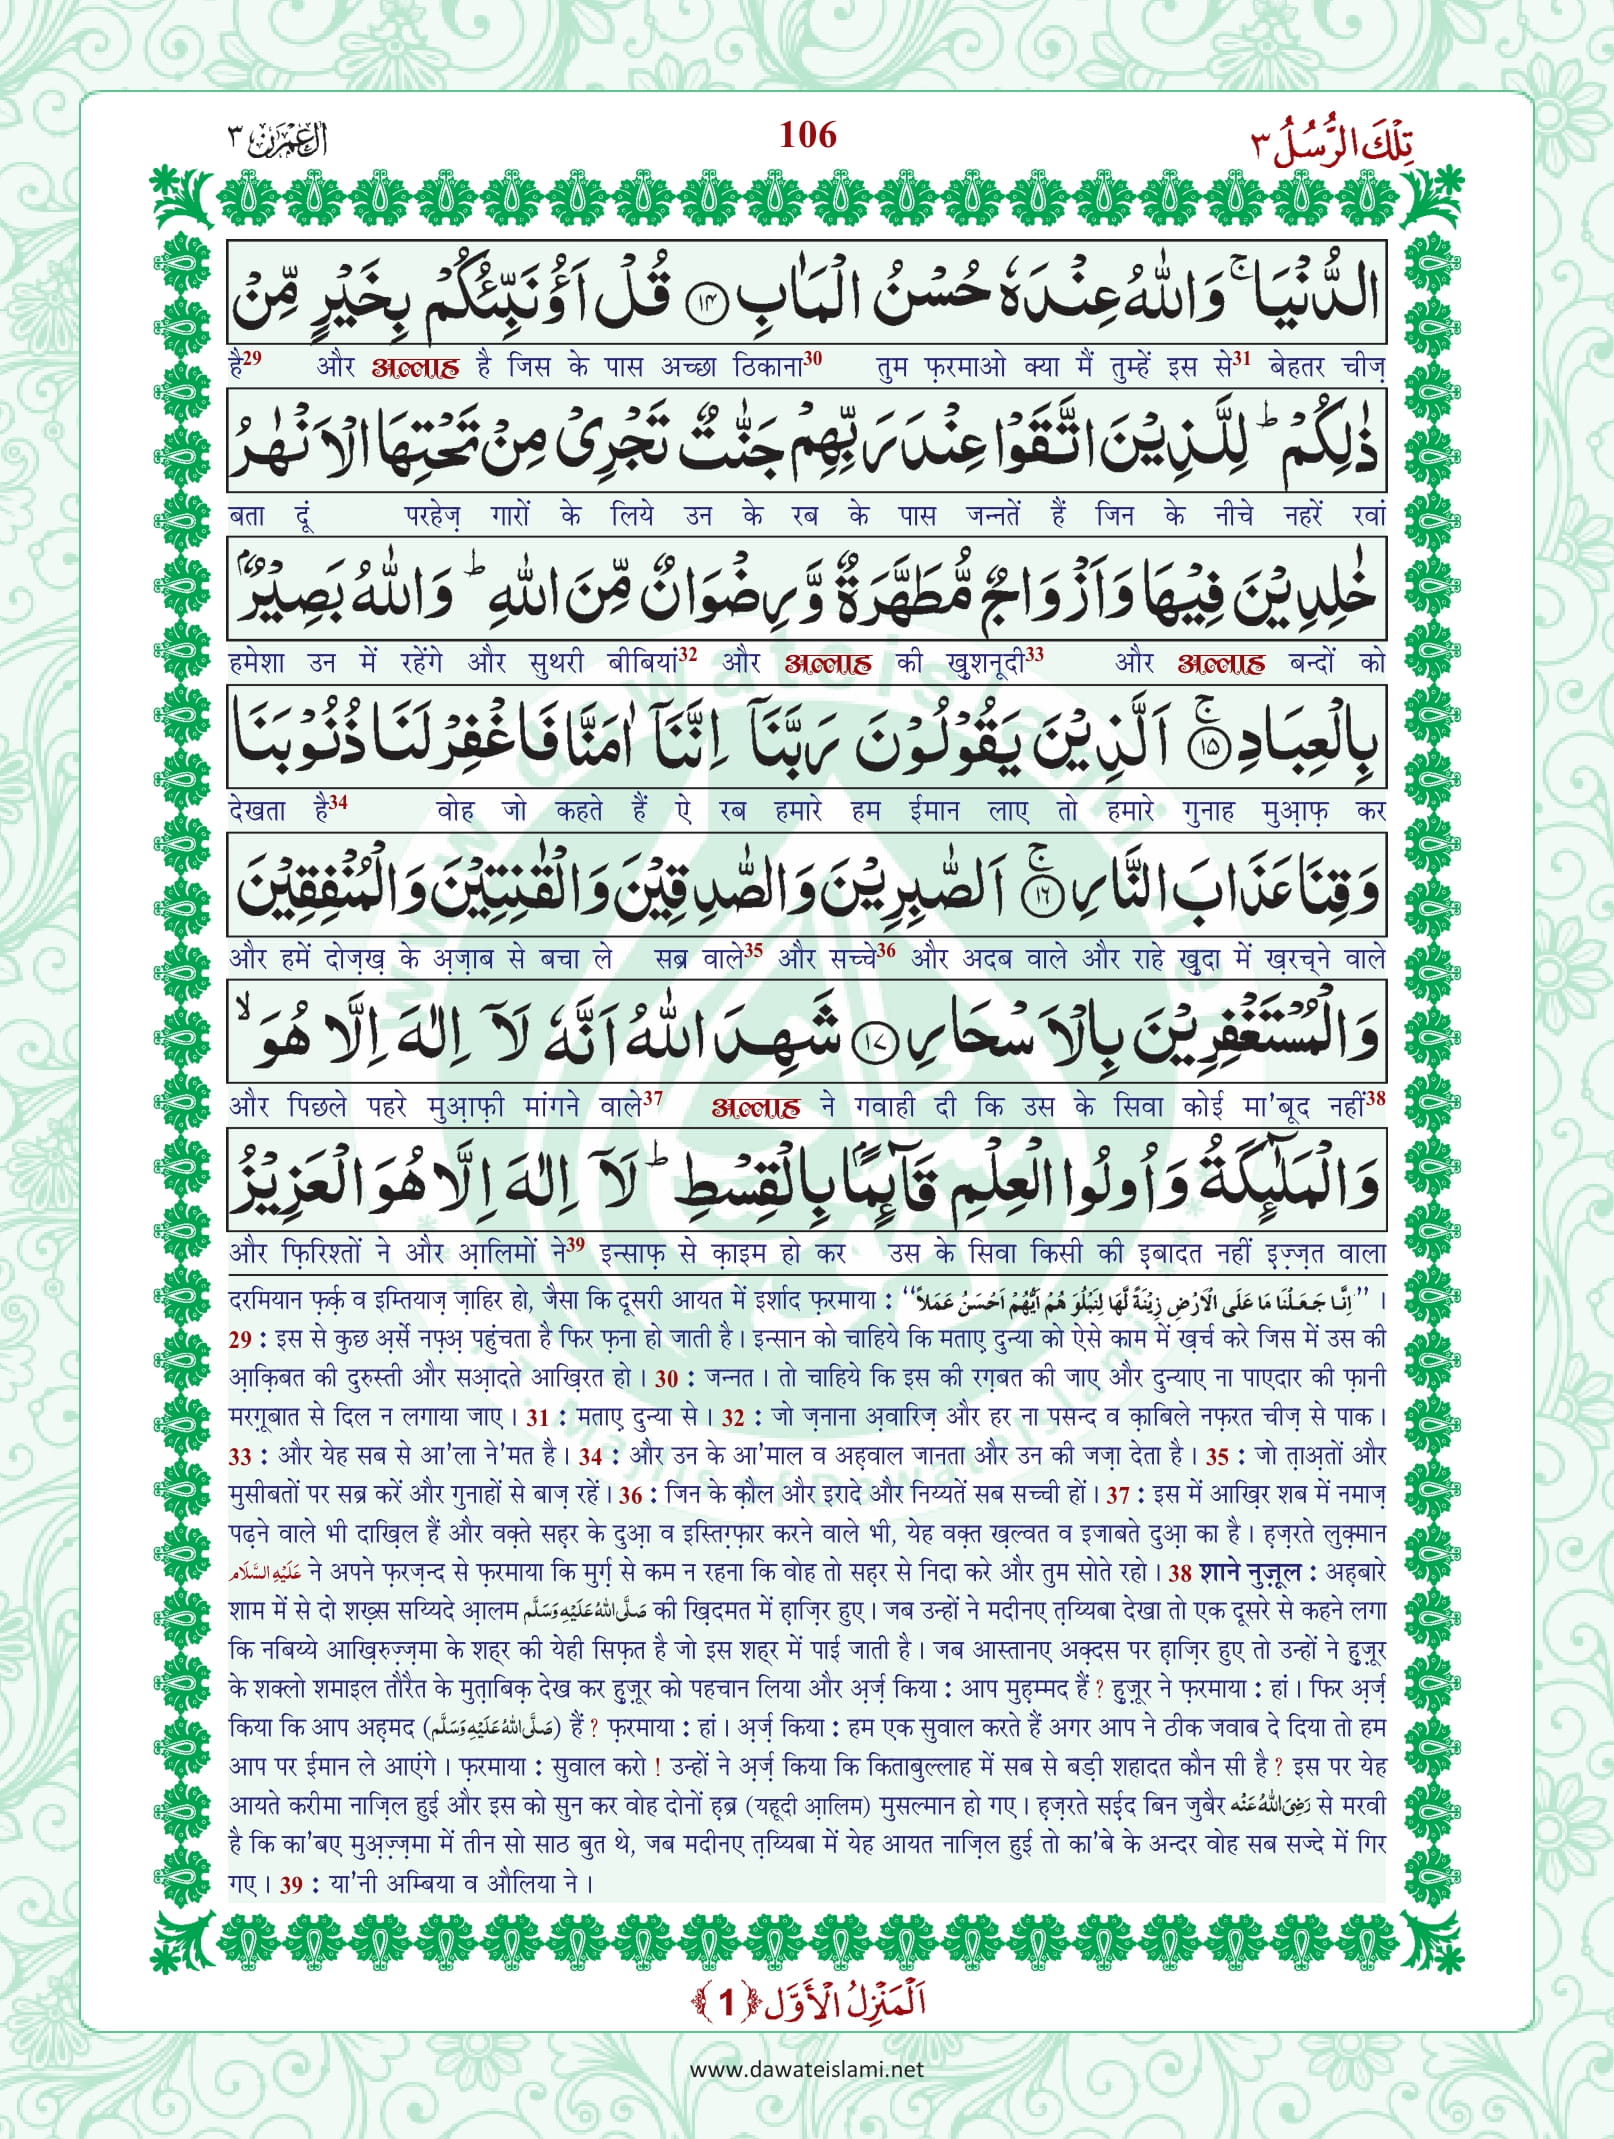 اٰل عمرٰن ٣
106
تِلْكَ الرُّسُلُ ٣
الدُّنْیَا ۚ وَاللّٰهُ عِنْدَهٗ حُسْنُ الْمَاٰبِ ﴿۱۴﴾ قُلْ اَؤُنَبِّئُكُمْ بِخَیْرٍ مِّنْ
है29 और अल्लाह है जिस के पास अच्छा ठिकाना30 तुम फ़रमाओ क्या मैं तुम्हें इस से31 बेहतर चीज़
ذٰلِكُمْ ؕ لِلَّذِیْنَ اتَّقَوْا عِنْدَ رَبِّهِمْ جَنّٰتٌ تَجْرِیْ مِنْ تَحْتِهَا الْاَنْهٰرُ
बता दूं परहेज़ गारों के लिये उन के रब के पास जन्नतें हैं जिन के नीचे नहरें रवां
خٰلِدِیْنَ فِیْهَا وَاَزْوَاجٌ مُّطَهَّرَةٌ وَّرِضْوَانٌ مِّنَ اللّٰهِ ؕ وَاللّٰهُ بَصِیْرٌۢ
हमेशा उन में रहेंगे और सुथरी बीबियां32 और अल्लाह की ख़ुशनूदी33 और अल्लाह बन्दों को
بِالْعِبَادِ ﴿۱۵﴾ۚ اَلَّذِیْنَ یَقُوْلُوْنَ رَبَّنَاۤ اِنَّنَاۤ اٰمَنَّا فَاغْفِرْ لَنَا ذُنُوْبَنَا
देखता है34 वोह जो कहते हैं ऐ रब हमारे हम ईमान लाए तो हमारे गुनाह मुआ़फ़ कर
وَقِنَا عَذَابَ النَّارِ ﴿۱۶﴾ۚ اَلصّٰبِرِیْنَ وَالصّٰدِقِیْنَ وَالْقٰنِتِیْنَ وَالْمُنْفِقِیْنَ
और हमें दोज़ख़ के अ़ज़ाब से बचा ले सब्र वाले35 और सच्चे36 और अदब वाले और राहे ख़ुदा में ख़रच्ने वाले
وَالْمُسْتَغْفِرِیْنَ بِالْاَسْحَارِ ﴿۱۷﴾ شَهِدَ اللّٰهُ اَنَّهٗ لَاۤ اِلٰهَ اِلَّا هُوَ ۙ
और पिछले पहरे मुआ़फ़ी मांगने वाले37 अल्लाह ने गवाही दी कि उस के सिवा कोई मा’बूद नहीं38
وَالْمَلٰٓىِٕكَةُ وَاُولُوا الْعِلْمِ قَآىِٕمًۢا بِالْقِسْطِ ؕ لَاۤ اِلٰهَ اِلَّا هُوَ الْعَزِیْزُ
और फ़िरिश्तों ने और आ़लिमों ने39 इन्साफ़ से क़ाइम हो कर उस के सिवा किसी की इ़बादत नहीं इ़ज़्ज़त वाला
दरमियान फ़र्क़ व इम्तियाज़ ज़ाहिर हो, जैसा कि दूसरी आयत में इर्शाद फ़रमाया : ‘‘اِنَّا جَعَلْنَا مَا عَلَی الْاَرْضِ زِیْنَةً لَّهَا لِنَبْلُوَهُمْ اَیُّهُمْ اَحْسَنُ عَمَلًا’’ ।
29 : इस से कुछ अ़र्से नफ़्अ़ पहुंचता है फिर फ़ना हो जाती है। इन्सान को चाहिये कि मताए़ दुन्या को ऐसे काम में ख़र्च करे जिस में उस की
आ़क़िबत की दुरुस्ती और सआ़दते आख़िरत हो। 30 : जन्नत। तो चाहिये कि इस की रग़बत की जाए और दुन्याए ना पाएदार की फ़ानी
मरग़ूबात से दिल न लगाया जाए। 31 : मताए़ दुन्या से। 32 : जो ज़नाना अ़वारिज़ और हर ना पसन्द व क़ाबिले नफ़रत चीज़ से पाक।
33 : और येह सब से आ’ला ने’मत है। 34 : और उन के आ’माल व अह़वाल जानता और उन की जज़ा देता है। 35 : जो त़ाअ़तों और
मुसीबतों पर सब्र करें और गुनाहों से बाज़ रहें। 36 : जिन के क़ौल और इरादे और निय्यतें सब सच्ची हों। 37 : इस में आख़िर शब में नमाज़
पढ़ने वाले भी दाख़िल हैं और वक़्ते सह़र के दुआ़ व इस्तिग़्फ़ार करने वाले भी, येह वक़्त ख़ल्वत व इजाबते दुआ़ का है। ह़ज़रते लुक़्मान
عَلَیْهِ السَّلَام ने अपने फ़रज़न्द से फ़रमाया कि मुर्ग़ से कम न रहना कि वोह तो सह़र से निदा करे और तुम सोते रहो। 38 शाने नुज़ूल : अह़बारे
शाम में से दो शख़्स सय्यिदे आ़लम صَلَّی اللّٰهُ عَلَیْهِ وَسَلَّم की ख़िदमत में ह़ाज़िर हुए। जब उन्हों ने मदीनए त़य्यिबा देखा तो एक दूसरे से कहने लगा
कि नबिय्ये आख़िरुज़्ज़मा के शहर की येही सिफ़त है जो इस शह्र में पाई जाती है। जब आस्तानए अक़्दस पर ह़ाज़िर हुए तो उन्हों ने हुज़ूर
के शक्लो शमाइल तौरैत के मुत़ाबिक़ देख कर हुज़ूर को पहचान लिया और अ़र्ज़ किया : आप मुह़म्मद हैं ? हुज़ूर ने फ़रमाया : हां। फिर अ़र्ज़
किया कि आप अह़मद (صَلَّی اللّٰهُ عَلَیْهِ وَسَلَّم) हैं ? फ़रमाया : हां। अ़र्ज़ किया : हम एक सुवाल करते हैं अगर आप ने ठीक जवाब दे दिया तो हम
आप पर ईमान ले आएंगे। फ़रमाया : सुवाल करो ! उन्हों ने अ़र्ज़ किया कि किताबुल्लाह में सब से बड़ी शहादत कौन सी है ? इस पर येह
आयते करीमा नाज़िल हुई और इस को सुन कर वोह दोनों ह़ब्र (यहूदी आ़लिम) मुसल्मान हो गए। ह़ज़रते सई़द बिन जुबैर رَضِیَ اللّٰهُ عَنْه से मरवी
है कि का’बए मुअ़ज़्ज़मा में तीन सो साठ बुत थे, जब मदीनए त़य्यिबा में येह आयत नाज़िल हुई तो का’बे के अन्दर वोह सब सज्दे में गिर
गए। 39 : या’नी अम्बिया व औलिया ने।
اَلْمَنْزِلُ الْاَوَّل ﴿1﴾
www.dawateislami.net